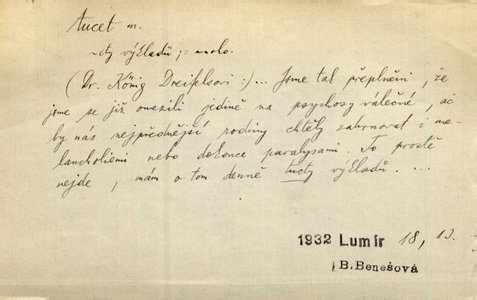 tucet m.
~dy výkladů; = mnoho.
(Dr. König Dreifelsovi:)... Jsme tak přeplněni, že
jsme se již omezili jedině na psychosy válečné, ač
by nás nejpřednější rodiny chtěly zahrnovat i me-
lancholiemi nebo dokonce paralysami. To prostě
nejde, mám o tom denně tucty výkladů. ...
1932 Lumír 18, 13.
B. Benešová